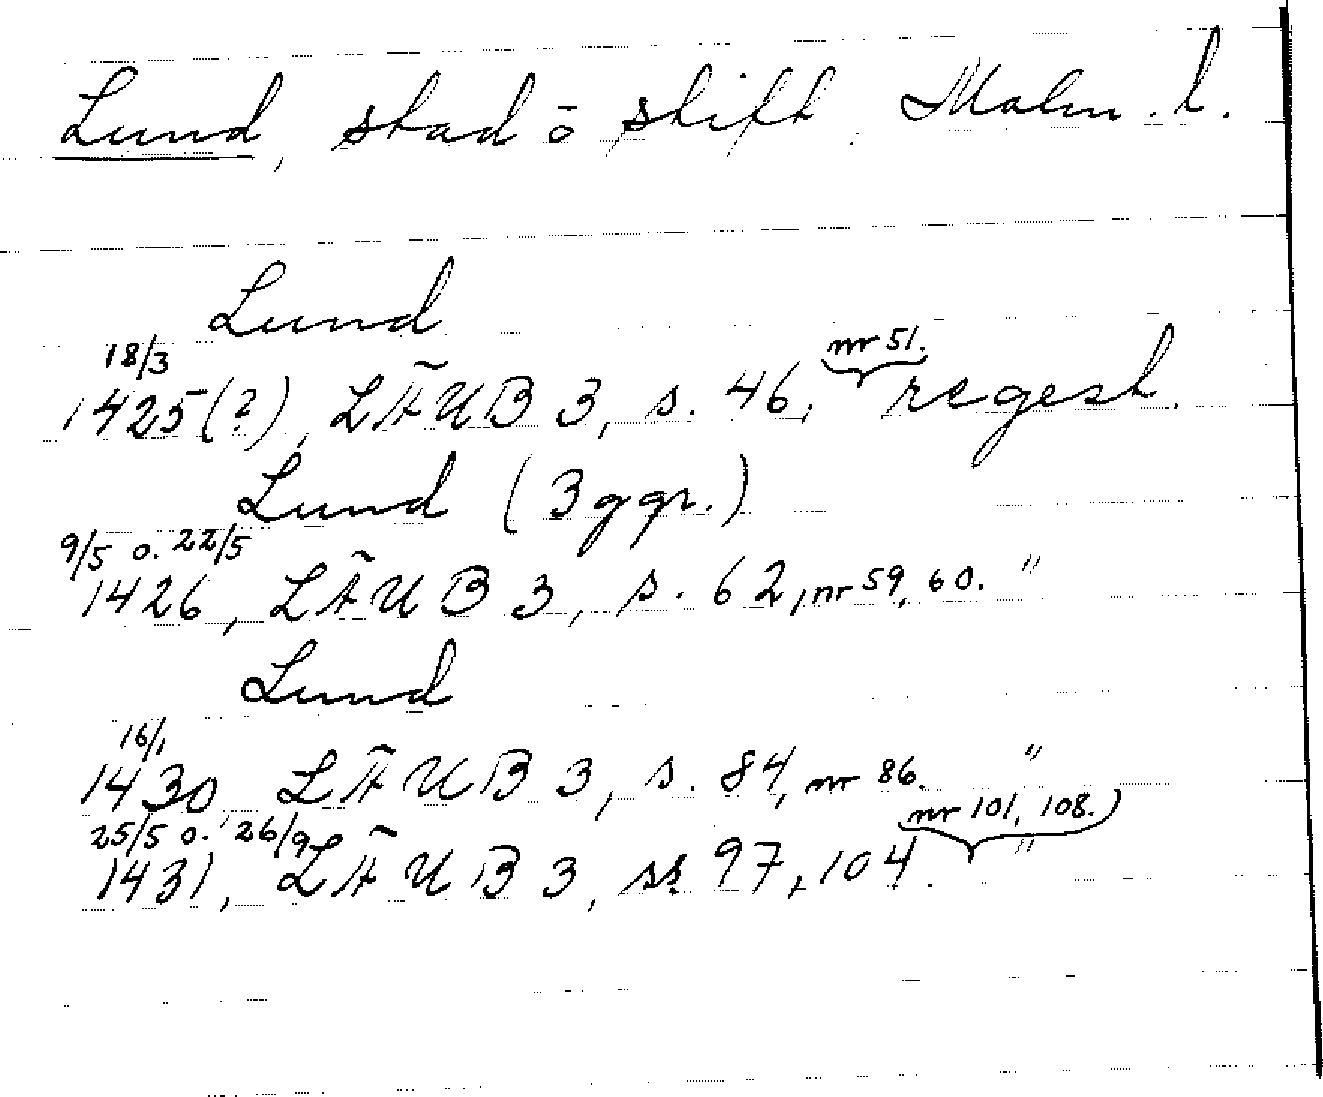 Lund, stad ō stift. Malm. l.
Lund
18/3 nr 51.
1425(?), LÄUB 3, s. 46, regest.
Lund (3 ggr.)
9/5 o. 22/5
1426, LÄUB 3, s. 62, nr 59, 60. "
Lund
16/1
1430 LÄUB 3, s. 84, nr 86. "
25/5 o. 26/9 nr 101, 108.)
1431, LÄUB 3, ss 97, 104. "